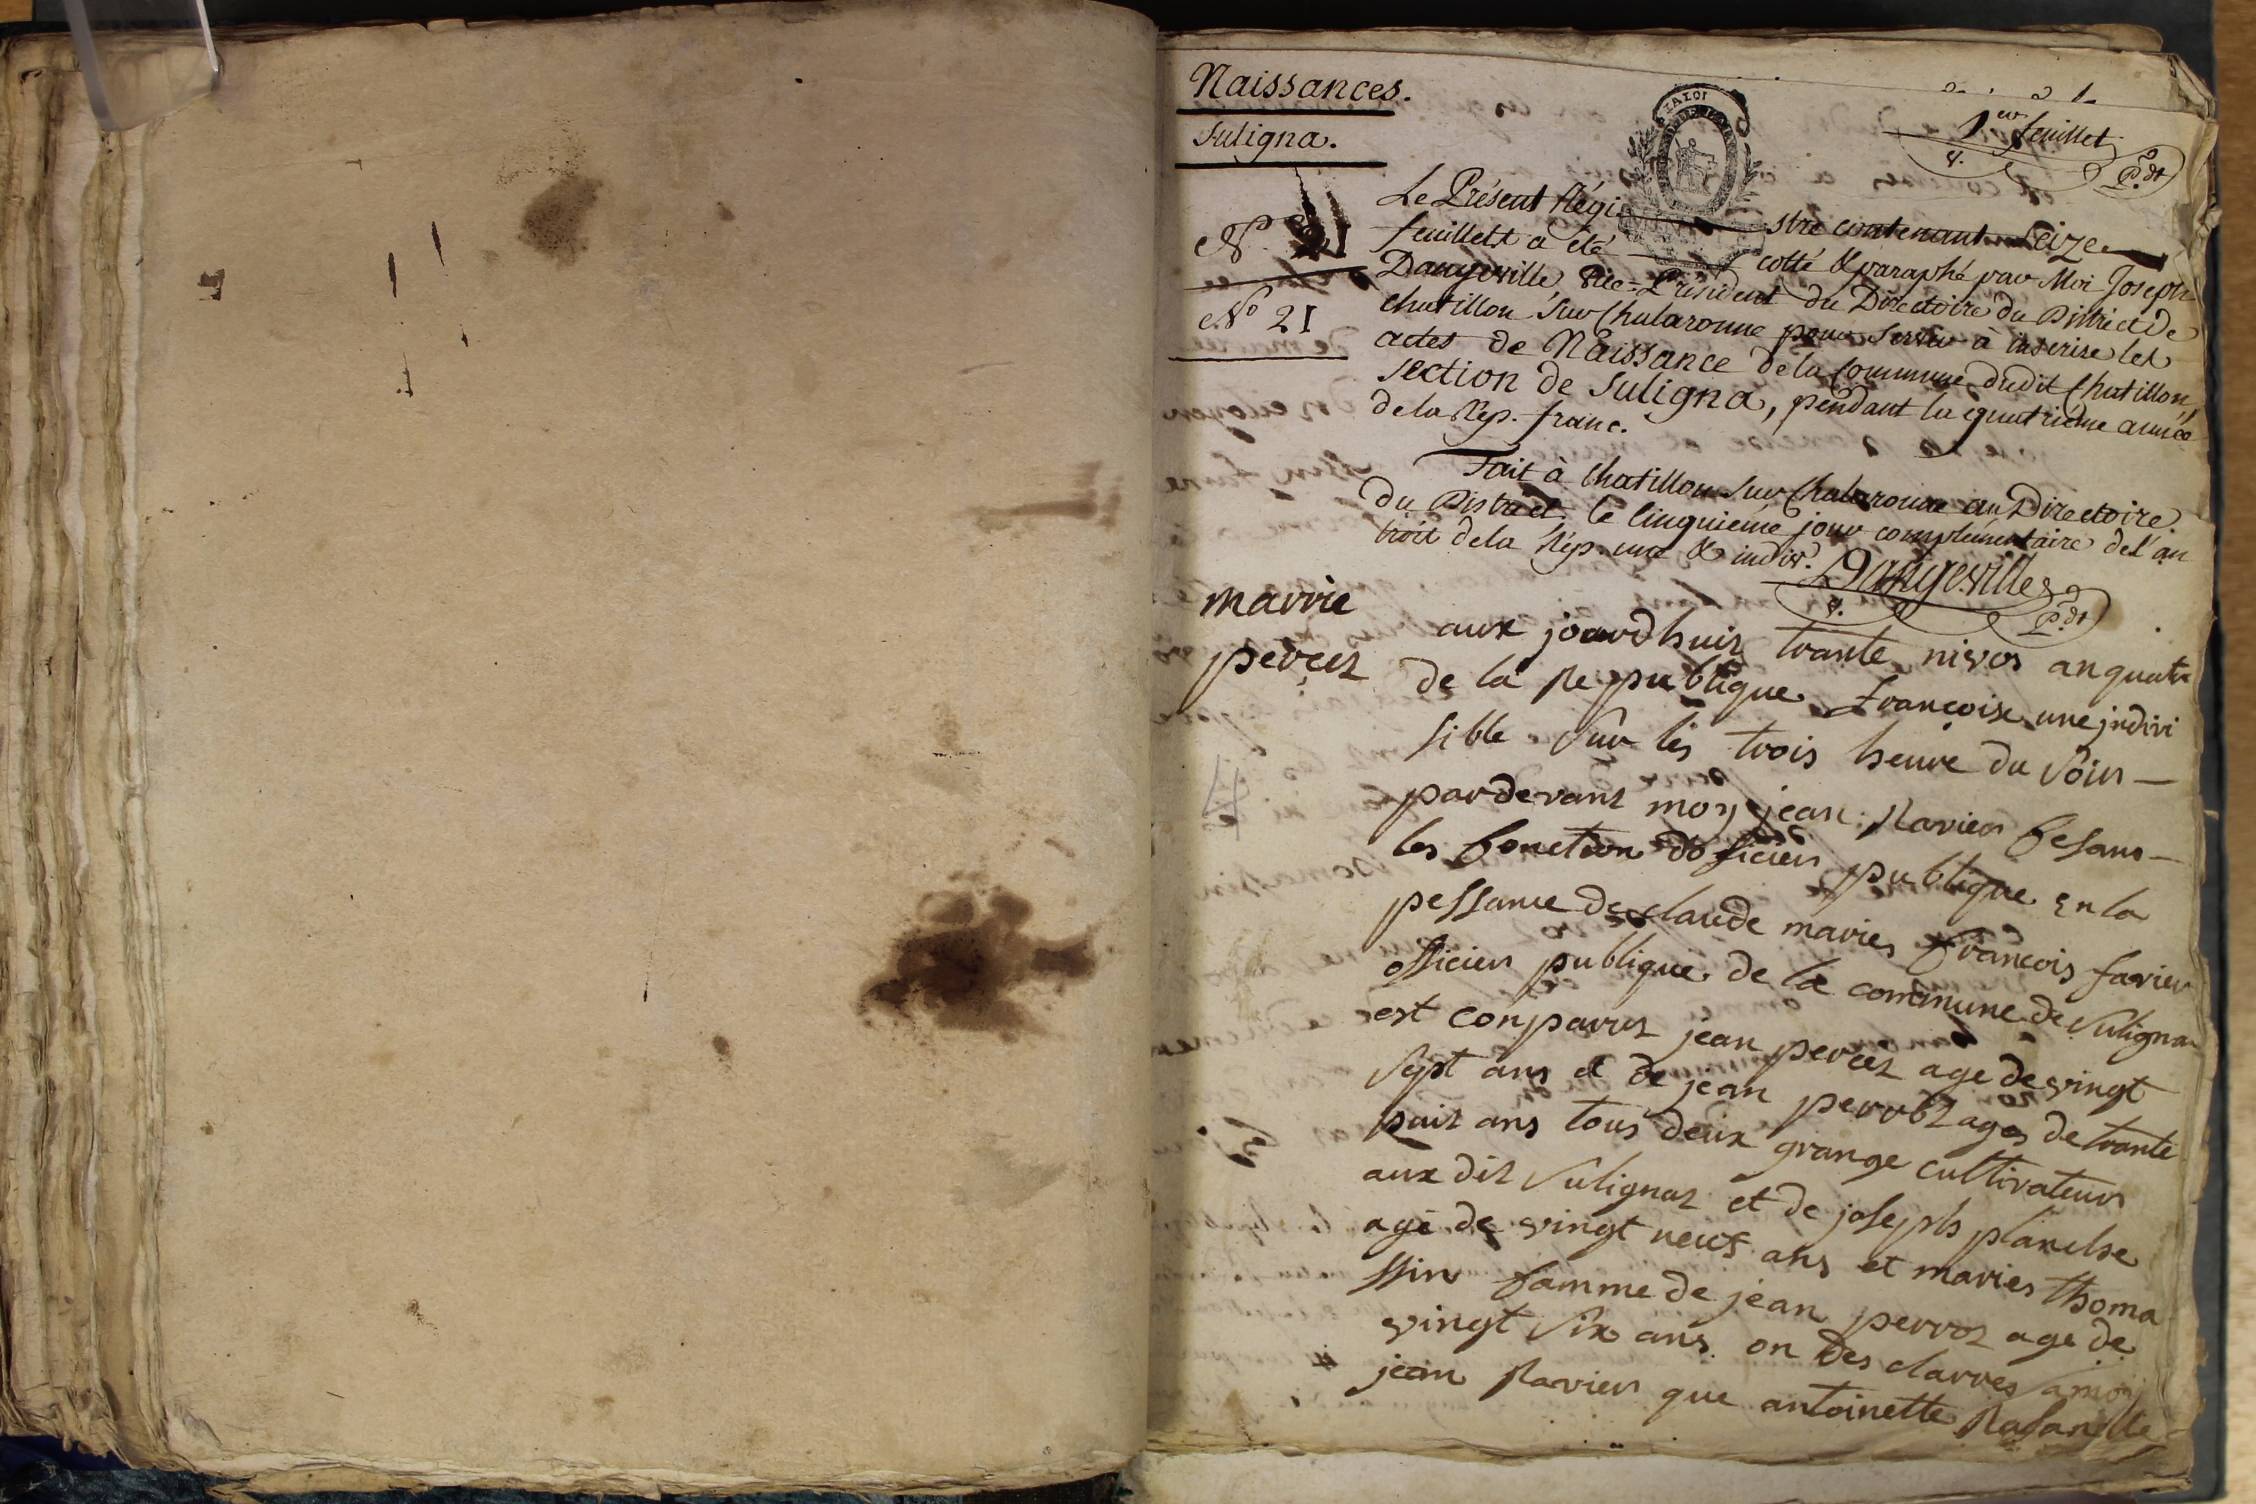 Naissances.
Suligna.
1er feuillet
v. Pdt
LA LOI
N°
N° 21
Le Présent Régistre contenant Seize
feuillets a été cotté & paraphé par Moi Joseph
Dangeville, Vice-Président du Directoire du District de
Chatillon Sur Chalaronne pour servir à inscrire les
actes de Naissance de la Commune dudit Chatillon,
section de Suligna, pendant la quatrième année
de la Rép. franc.
Fait à Chatillon Sur Chalaronne au Directoire
du District. le Cinquième jour complémentaire de l'an
trois de la Rép. une & indiv.
Dangeville
v. Pdt
marrie
percez
aux jourdhuiz trante nivos an quatre
de la Republique francoise une jndivi
sible Sur les trois heure du Soir —
pardevant moy jean Ravier fesans —
les fonction dofficier publique en la
pessance de claude maries francois favier
officier publique de la commune de Suligna
est conparuz jean percez age de vingt
Sept ans et de jean perroz ages de trante
huit ans tous deux grange cultivateur
aux dit Sulignaz et de joseph planche
agé de vingt neuf ans et maries thoma
ssin famme de jean perroz age de
vingt Six ans on des clarres a moy
jean Ravier que antoinette